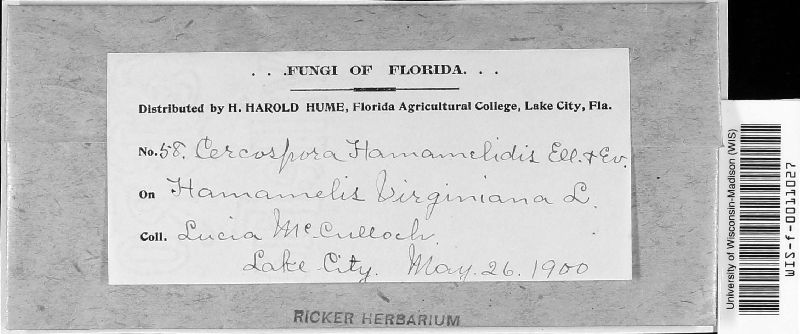 . . .FUNGI OF FLORIDA. . .
Distributed by H. HAROLD HUME, Florida Agricultural College, Lake City, Fla.
No. 58. Cercospora Hamamelidis Ell. & Ev.
On Hamamelis Virginiana L.
Coll. Lucia McCulloch.
Lake City. May. 26. 1900
RICKER HERBARIUM
University of Wisconsin-Madison (WIS)
WIS-f-0011027